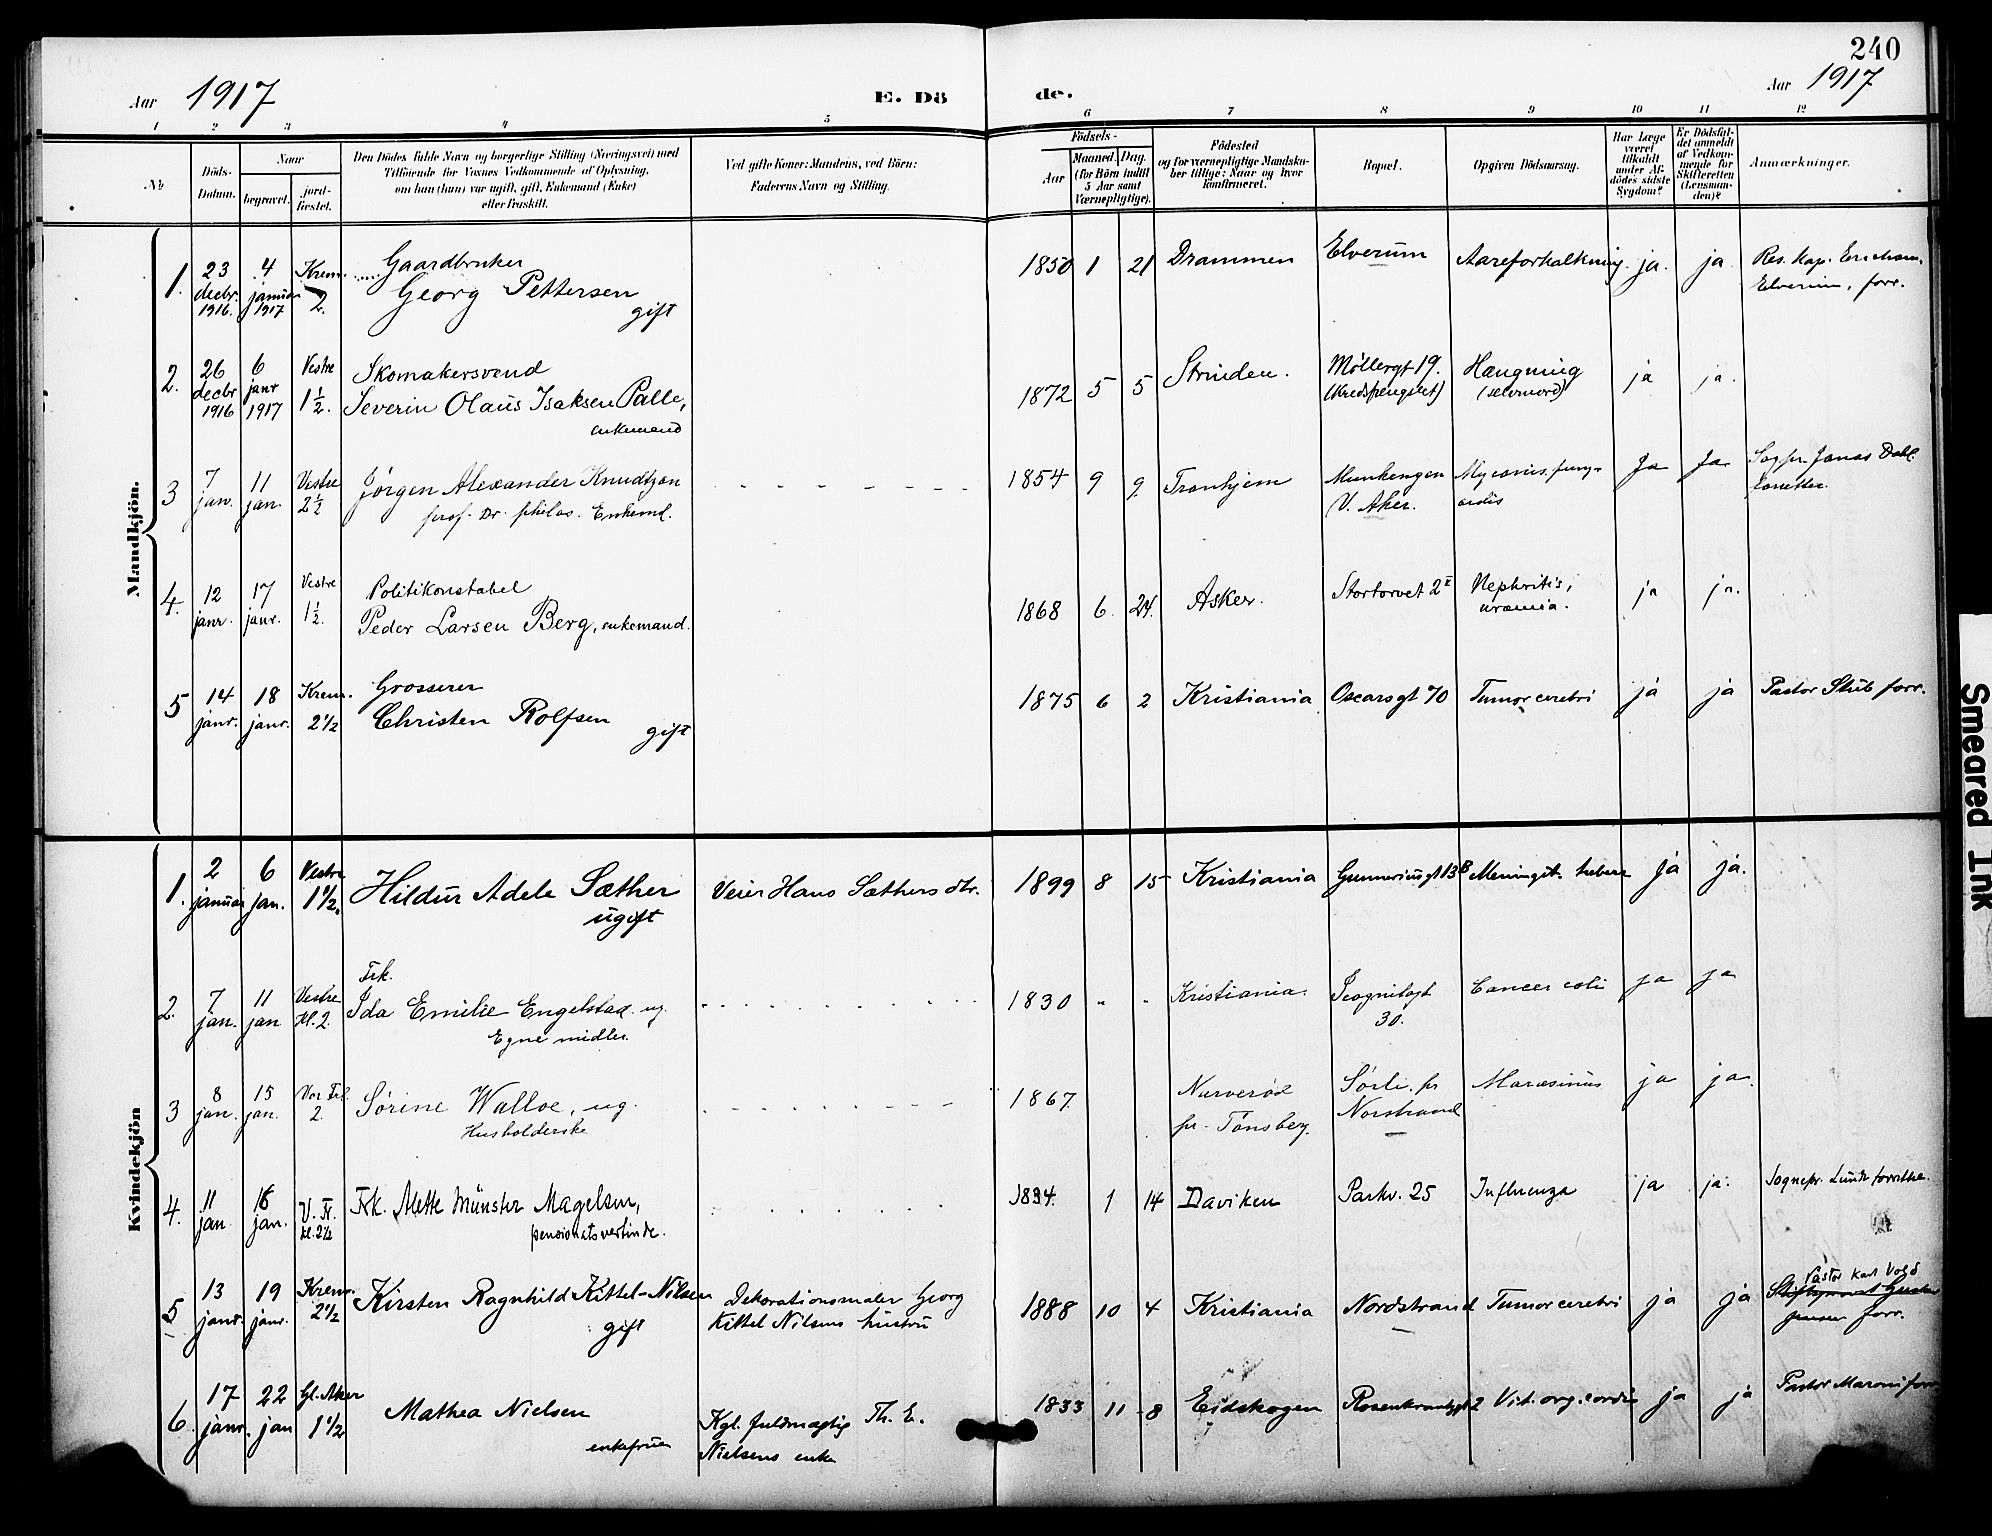 240
Aar 1917
E. Dö
de.
Aar 1917
1 2 3 4 5 6 7 8 9 10 11 12
№
Döds-
Datum.
Naar
begravet.
jord-
fæstet.
Den Dödes fulde Navn og borgerlige Stilling (Næringsvei) med
Tilföiende for Voxnes Vedkommende af Oplysning,
om han (hun) var ugift, gift, Enkemand (Enke)
eller fraskilt.
Ved gifte Koner: Mandens, ved Börn:
Faderens Navn og Stilling.
Födsels-
Aar
Maaned. Dag.
(for Börn indtil
5 Aar samt
Værnepligtige).
Födested
og for værnepligtige Mandska-
ber tillige: Naar og hvor
konfirmeret.
Bopæl.
Opgiven Dödsaarsag.
Har Læge
været
tilkaldt
under Af-
dödes sidste
Sygdom?
Er Dödsfal-
det anmeldt
af Vedkom-
mende for
Skifteretten
(Lensman-
den)?
Anmærkninger.
Mandkjön.
1. 23 decbr. 1916. 4 januar 1917 Krem. 2. Gaardbruker
Georg Pettersen
gift
1850 1 21 Drammen Elverum Aareforkalkning. ja. ja Res. kap. Erichsen,
Elverum, forr.
2. 26 decbr 1916 6 janr 1917 Vestre 1½. Skomakersvend
Severin Olaus Isaksen Palle,
enkemand
1872 5 5 Strinden. Møllergt 19.
(Kredsfengslet) Hængning
(selvmord) ja ja.
3 7 jan. 11 jan. Vestre 2½ Jörgen Alexander Knudtzon
prof. Dr. philos. Enkemd.
1854 9 9. Tronhjem Munkengen
V. Aker. ja ja Sogpr. Jonas Dahl
forrettet.
4. 12 janr. 17 janr. Vestre 1½. Politikonstabel
Peder Larsen Berg, enkemand.
1868 6. 24. Asker. Stortorvet 2 Nephritis,
uræmia. ja ja.
5 14 janr. 18 janr. Krem. 2½ Grosserer
Christen Rolfsen
gift
1875 6 2 Kristiania Oscarsgt 70 Tumor cerebri ja ja Pastor Stub forr.
Kvindekjön
1. 2 januar 6 jan. Vestre 1½. Hildur Adele Sæther
ugift
Veier Hans Sæthers dtr.
1899 8 15 Kristiania Gunneriusgt 13B Meningit. tuberc ja ja.
2. 7 jan. 11 jan Vestre kl. 2. Frk.
Ida Emilie Engelstad. ug.
Egne midler.
1830 " " Kristiania. Incognitogt
30. Cancer coli ja ja
3 8 jan. 15 jan. Vor Frl. 2. Sørine Walloe, ug.
Husholderske
1867. Narverød
pr. Tönsberg. Sørli. pr
Norstrand Marasmus ja ja.
4. 11 jan. 16 jan. V. Fr. kl. 2½ Frk. Alette Münster Magelsen,
pensionatsvertinde.
1834. 1 14 Daviken Parkv. 25 Influenza ja ja. Sognepr. Lunde forrettet.
5 13 janr. 19 janr. Krem. 2½ Kirsten Ragnhild Kittel-Nilsen
gift
Dekorationsmaler Georg
Kittel Nilsens hustru
1888 10 4 Kristiania Nordstrand Tumor cerebri ja ja Pastor Karl Vold
forr.
6. 17 janr. 22 jan Gl. Aker 1½ Mathea Nielsen
enkefrue
Kgl. fuldmægtig Th. E.
Nielsens enke
1833 11 8 Eidskogen Rosenkrantzgt 2 Vit. org. cordis ja ja Pastor Maroni forr.
Smeared Ink